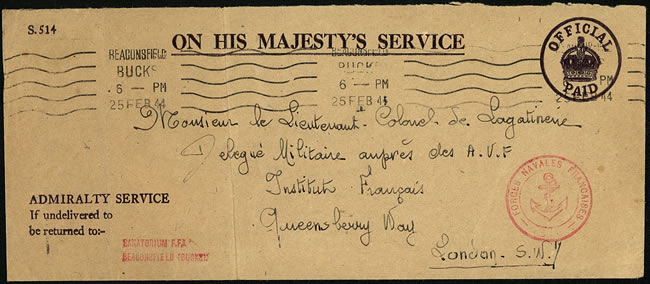 S.514
ON HIS MAJESTY'S SERVICE
OFFICIAL
PAID
BEACONSFIELD
BUCKS
6 - PM
25 FEB 44
BEACONSFIELD
BUCKS
6 - PM
25 FEB 44
PM
44
Monsieur le Lieutenant-Colonel de Lagatinerie
Delegué Militaire auprès des A.V.F
Institut Français
Queensberry Way
London. S.W.7
FORCES NAVALES FRANÇAISES
ADMIRALTY SERVICE
If undelivered to
be returned to:-
SANATORIUM F.F.
BEACONSFIELD (BUCKS)